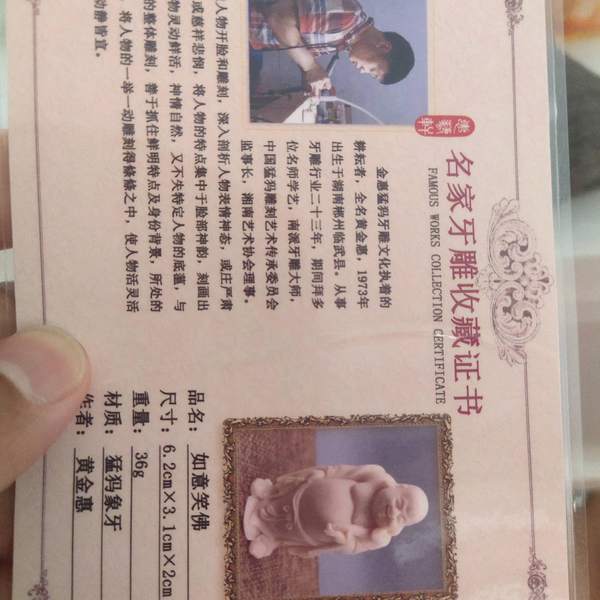 惠藝軒
名家牙雕收藏证书
FAMOUS WORKS COLLECTION CERTIFICATE
金惠猛犸牙雕文化执着的
耕耘者，全名黄金惠，1973年
出生于湖南郴州临武县。从事
牙雕行业二十三年，期间拜多
位名师学艺，南派牙雕大师，
中国猛犸雕刻艺术传承委员会
监事长，湘南艺术协会理事。
人物开脸和雕刻，深入剖析人物表情神态，或庄严肃
或慈祥悲悯，将人物的特点集中于脸部神韵，刻画出
物灵动鲜活，神情自然，又不失特定人物的底蕴，与
的整体雕刻，善于抓住鲜明特点及身份背景，所处的
，将人物的一举一动雕刻得條條之中，使人物活灵活
动静皆宜。
品名：如意笑佛
尺寸：6.2cm×3.1cm×2cm
重量：36g
材质：猛犸象牙
作者：黄金惠